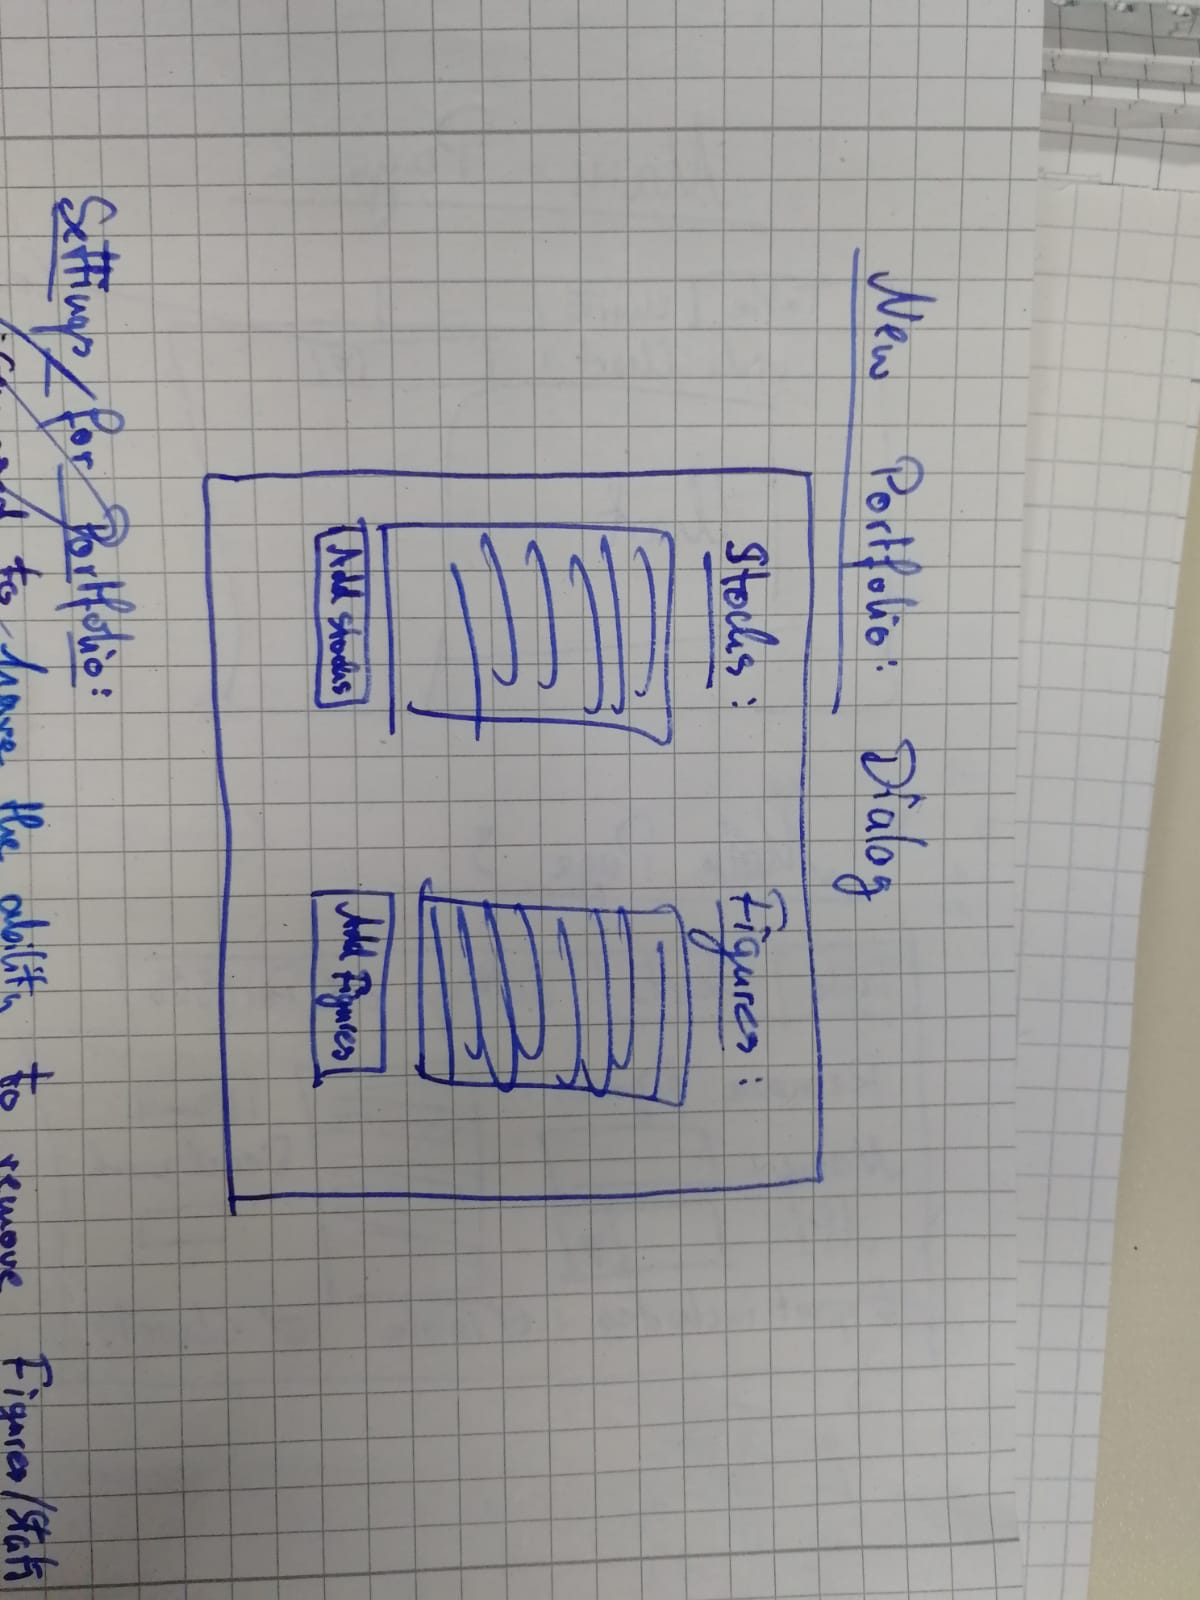 New Portfolio: Dialog
Stocks: Figures:
Add Stocks Add Figures
Settings/for Portfolio:
to have the ability to remove Figures/Stats